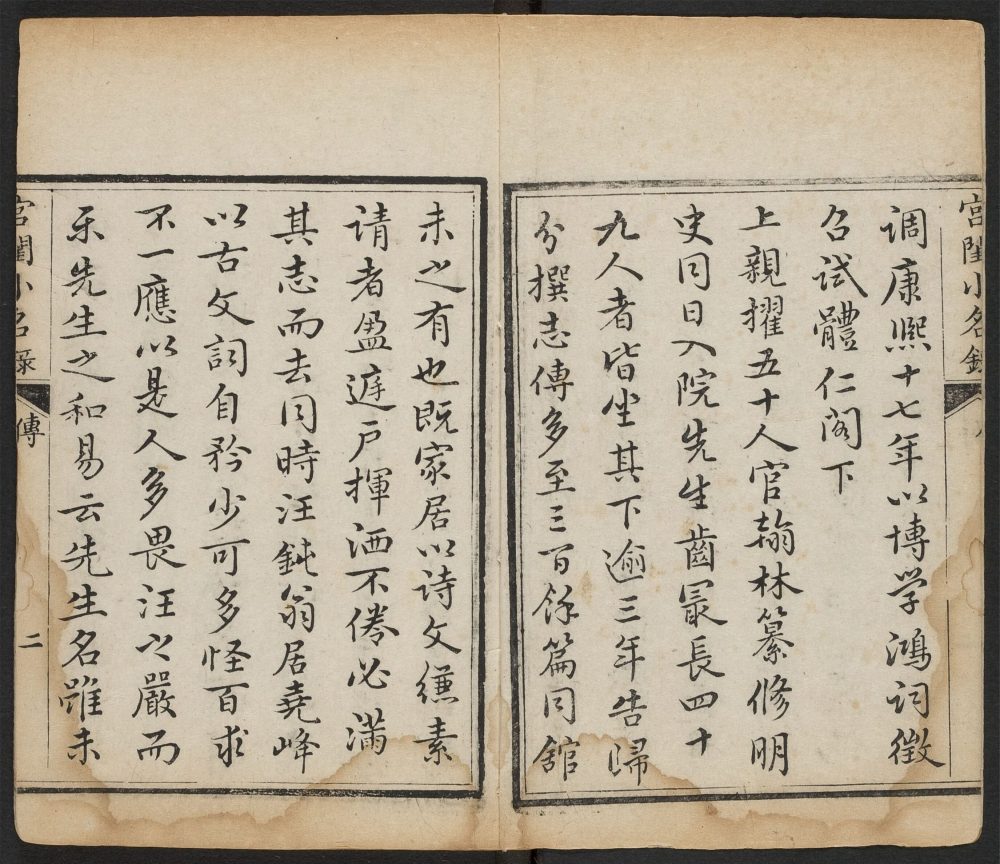 宫閨小名錄
調康熙十七年以博学鴻詞徵
召試體仁阁下
上親擢五十人官翰林纂修明
史同日入院先生齒最長四十
九人者皆坐其下逾三年告歸
分撰志傳多至三百餘篇同舘
未之有也既家居以诗文縑素
请者盈迬户揮洒不倦必满
其志而去同時汪鈍翁居堯峰
以古文詞自矜少可多怪百求
不一應以是人多畏汪之嚴而
乐先生之和易云先生名雖未
宫閨小名录
傳
二